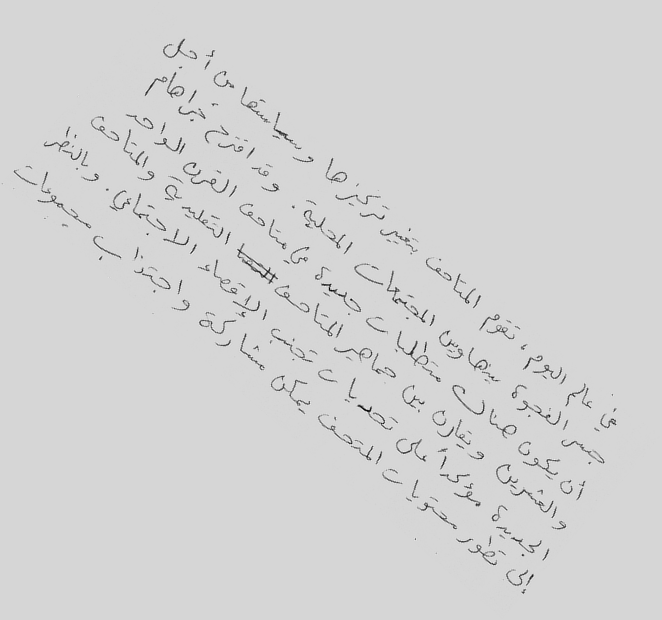 في عالم اليوم، تقوم المتاحف بتغير تركيزها وسياستها من أجل
جسر الفجوة بينها وبين المجتمعات المحلية. وقد اقترح جراهام
أن يكون هناك متطلبات جديدة في متاحف القرن الواحد
والعشرين ويقارن بين جماهير المتاحف التقليدية والمتاحف
الجديدة مؤكداً على تحديات تجنب الإقصاء الاجتماعي. وبالنظر
إلى تطور محتويات المتحف يمكن مشاركة واجتذاب مجموعات